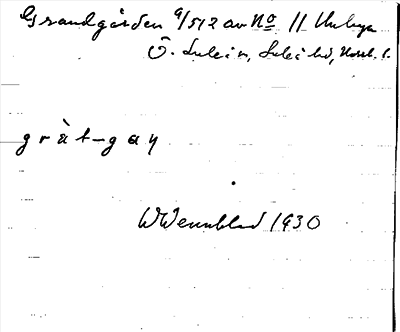 Grandgården 9/512 av No 11 Unbyn
Ö. Luleå sn, Luleå hd, Norrb. l.
gràt-gaɳ
WWennblad 1930